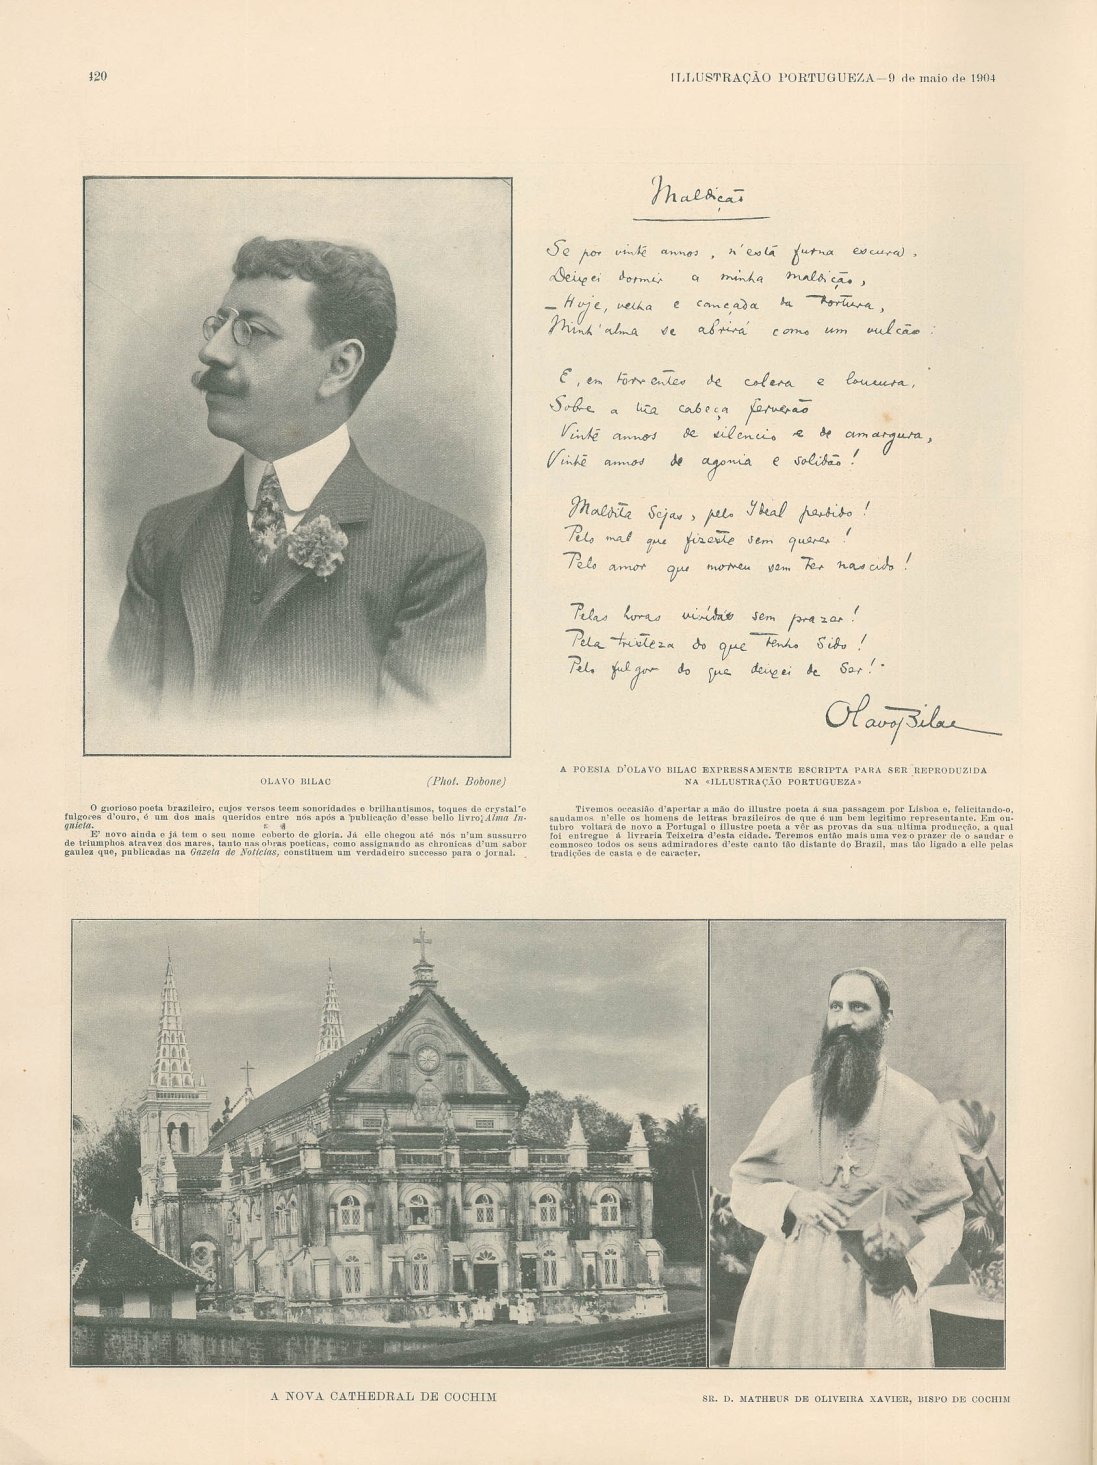 420
ILLUSTRAÇÃO PORTUGUEZA—9 de maio de 1904
Maldição
Se por vinte annos, n'esta furna escura,
Deixei dormir a minha maldição,
– Hoje, velha e cançada da tortura,
Minh'alma se abrirá como um vulcão.
E, em torrentes de colera e loucura,
Sobre a tua cabeça ferverão
Vinte annos de silencio e de amargura,
Vinte annos de agonia e solidão!
Maldita sejas, pelo Ideal perdido!
Pelo mal que fizeste sem querer!
Pelo amor que morreu sem ter nascido!
Pelas horas vividas sem prazer!
Pela tristeza do que tenho sido!
Pelo fulgor do que deixei de ser!
Olavo Bilac
OLAVO BILAC
(Phot. Bobone)
A POESIA D'OLAVO BILAC EXPRESSAMENTE ESCRIPTA PARA SER REPRODUZIDA
NA «ILLUSTRAÇÃO PORTUGUEZA»
O glorioso poeta brazileiro, cujos versos teem sonoridades e brilhantismos, toques de crystal e
fulgores d'ouro, é um dos mais queridos entre nós após a publicação d'esse bello livro, Alma In-
quieta.
E' novo ainda e já tem o seu nome coberto de gloria. Já elle chegou até nós n'um sussurro
de triumphos atravez dos mares, tanto nas obras poeticas, como assignando as chronicas d'um sabor
gaulez que, publicadas na Gazeta de Noticias, constituem um verdadeiro successo para o jornal.
Tivemos occasião d'apertar a mão do illustre poeta á sua passagem por Lisboa e, felicitando-o,
saudamos n'elle os homens de lettras brazileiros de que é um bem legitimo representante. Em ou-
tubro voltará de novo a Portugal o illustre poeta a vêr as provas da sua ultima producção, a qual
foi entregue á livraria Teixeira d'esta cidade. Teremos então mais uma vez o prazer de o saudar e
comnosco todos os seus admiradores d'este canto tão distante do Brazil, mas tão ligado a elle pelas
tradições de casta e de caracter.
A NOVA CATHEDRAL DE COCHIM
SR. D. MATHEUS DE OLIVEIRA XAVIER, BISPO DE COCHIM